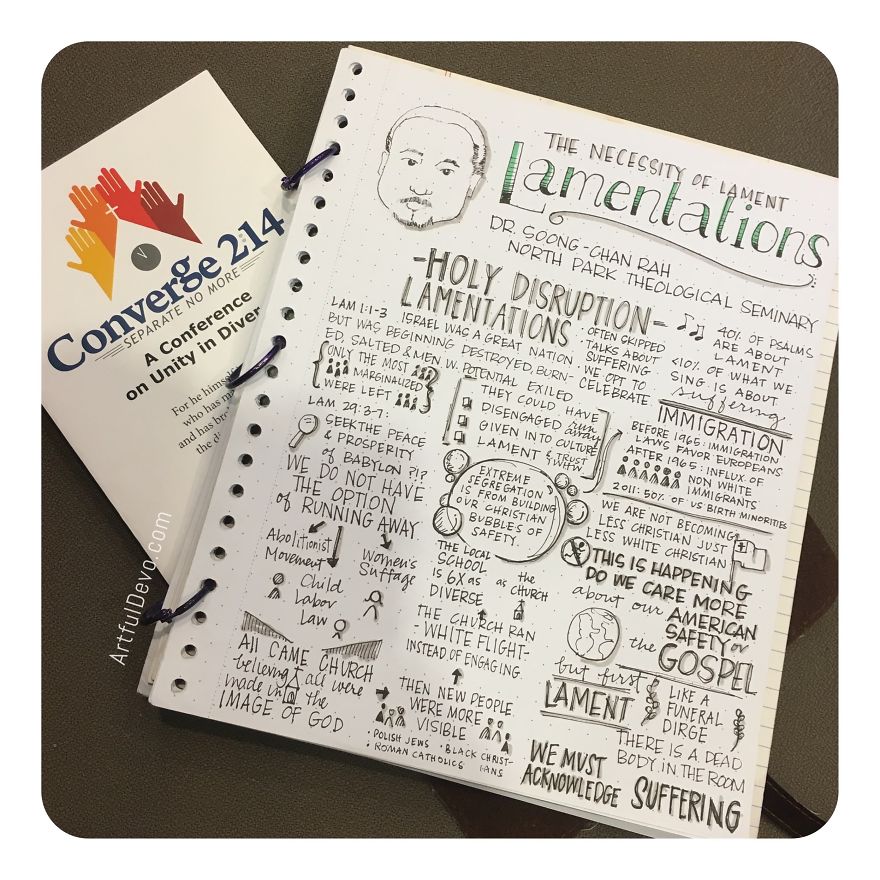 Converge 2:14
SEPARATE NO MORE
A Conference
on Unity in Diver
For he himself
who has ma
and has bro
the di
ArtfulDevo.com
THE NECESSITY OF LAMENT
Lamentations
DR. SOONG-CHAN RAH
NORTH PARK THEOLOGICAL SEMINARY
-HOLY DISRUPTION-
LAMENTATIONS
LAM 1:1-3 ISRAEL WAS A GREAT NATION
BUT WAS BEGINNING DESTROYED, BURN-
ED, SALTED & MEN W. POTENTIAL EXILED
ONLY THE MOST
MARGINALIZED
WERE LEFT
OFTEN SKIPPED
TALKS ABOUT
SUFFERING
WE OPT TO
CELEBRATE
40% OF PSALMS
ARE ABOUT
LAMENT
<10% OF WHAT WE
SING IS ABOUT
suffering
LAM 29:3-7:
SEEK THE PEACE
& PROSPERITY
of BABYLON ?!?
WE DO NOT HAVE
THE OPTION
of RUNNING AWAY.
THEY COULD HAVE
DISENGAGED run away
GIVEN INTO CULTURE
LAMENT & TRUST
YHWH
IMMIGRATION
BEFORE 1965: IMMIGRATION
LAWS FAVOR EUROPEANS
AFTER 1965: INFLUX OF
NON WHITE
IMMIGRANTS
2011: 50% OF US BIRTH MINORITIES
EXTREME
SEGREGATION
IS FROM BUILDING
OUR CHRISTIAN
BUBBLES OF
SAFETY.
WE ARE NOT BECOMING
LESS CHRISTIAN JUST
LESS WHITE CHRISTIAN
Abolitionist
Movement
Women's
Suffage
Child
Labor
Law
THE LOCAL
SCHOOL
IS 6X as as the
DIVERSE CHURCH
THIS IS HAPPENING
DO WE CARE MORE
about our AMERICAN
SAFETY or
the GOSPEL
THE CHURCH RAN
-WHITE FLIGHT-
INSTEAD OF ENGAGING.
All CAME CHURCH
believing all were
made in the
IMAGE OF GOD
THEN NEW PEOPLE
WERE MORE
VISIBLE
• POLISH JEWS • BLACK CHRIST-
• ROMAN CATHOLICS IANS
but first
LAMENT
LIKE A
FUNERAL
DIRGE
THERE IS A DEAD
BODY IN THE ROOM
WE MUST
ACKNOWLEDGE SUFFERING